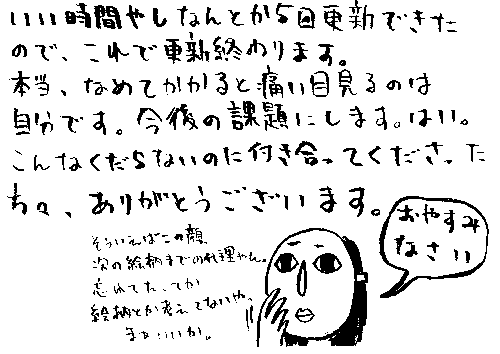 いい時間やしなんとか5回更新できた
ので、これで更新終わります。
本当、なめてかかると痛い目見るのは
自分です。今後の課題にします。はい。
こんなくだらないのに付き合ってくださった
方々、ありがとうございます。
おやすみ
なさい
そういえばこの顔
次の絵柄までの代理やん。
忘れてた、てか
絵柄とか考えてないや、
まぁいいか。